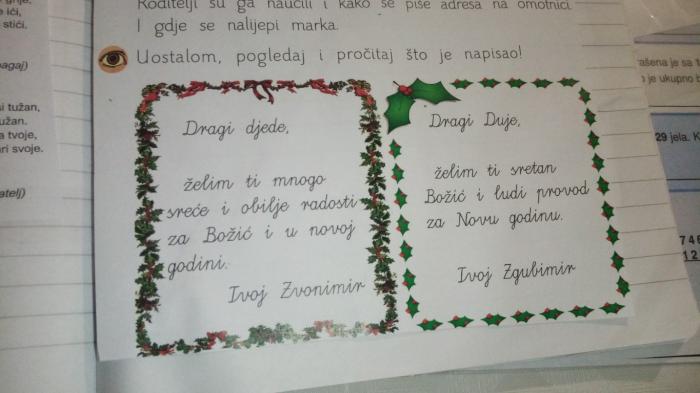 Roditelji su ga naučili i kako se piše adresa na omotnici.
I gdje se nalijepi marka.
Uostalom, pogledaj i pročitaj što je napisao!
Dragi djede,
želim ti mnogo
sreće i obilje radosti
za Božić i u novoj
godini.
Ivoj Zvonimir
Dragi Duje,
želim ti sretan
Božić i ludi provod
za Novu godinu.
Ivoj Zgubimir
ići,
stići.
tužan,
tvoje,
svoje.
je sa
je ukupno
29 jela.